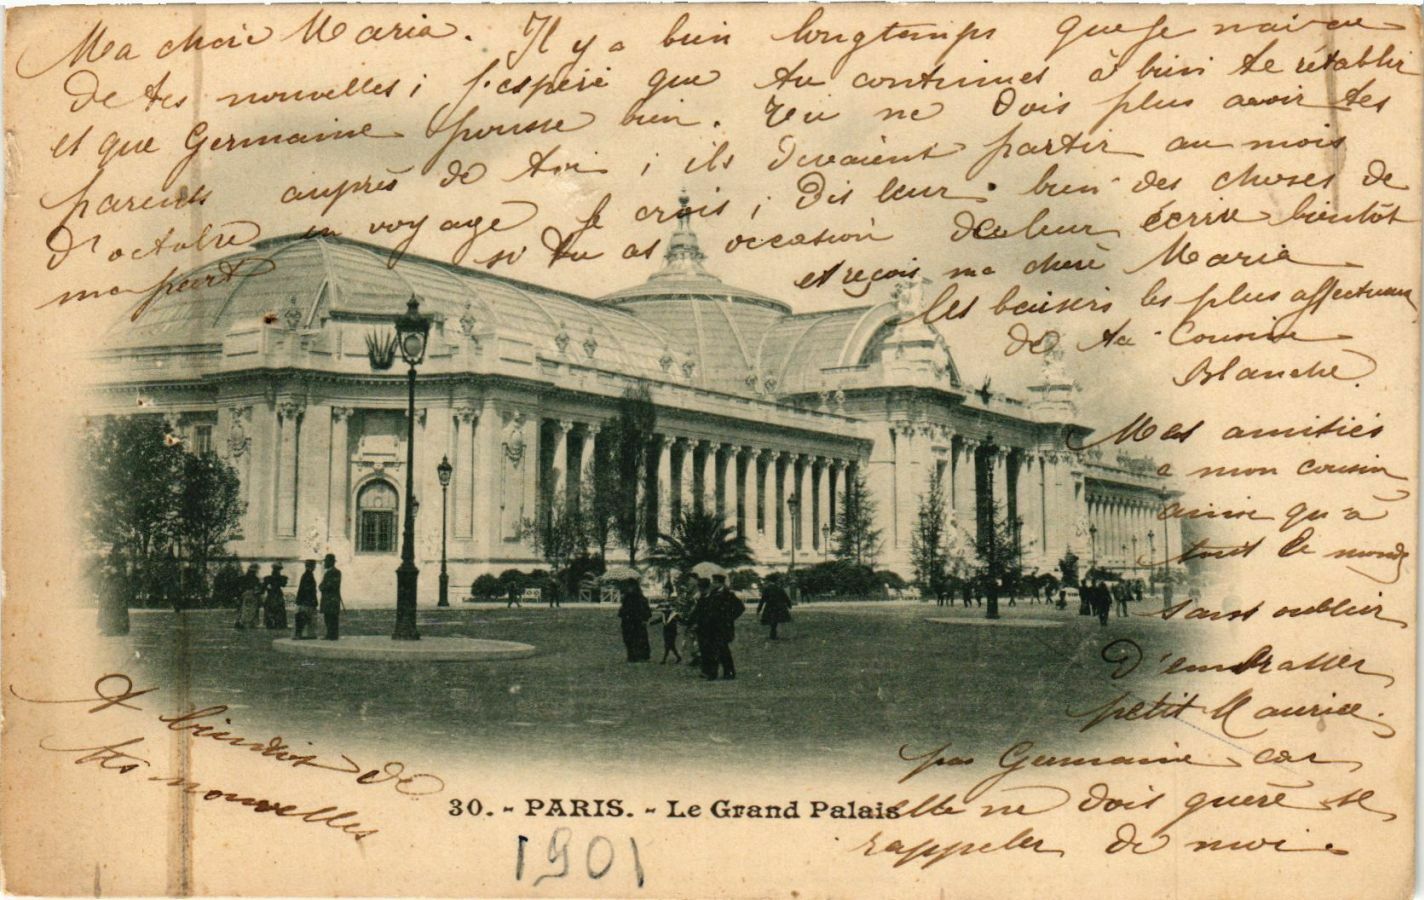 Ma chère Maria. Il y a bien longtemps que je n'ai eu
de tes nouvelles ; j'espère que tu continues à bien te rétablir
et que Germaine pousse bien. Tu ne dois plus avoir tes
parents auprès de toi ; ils devaient partir au mois
d'octobre en voyage je crois ; Dis leur bien des choses de
ma part si tu as occasion de leur écrire bientôt
et reçois ma chère Maria
les baisers les plus affectueux
de ta Cousine
Blanche.
Mes amitiés
a mon cousin
ainsi qu'à
tout le monde
sans oublier
d'embrasser
petit Maurice.
pas Germaine car
elle ne dois guère se
rappeler de moi.
A bientôt de
tes nouvelles
30. - PARIS. - Le Grand Palais
1901